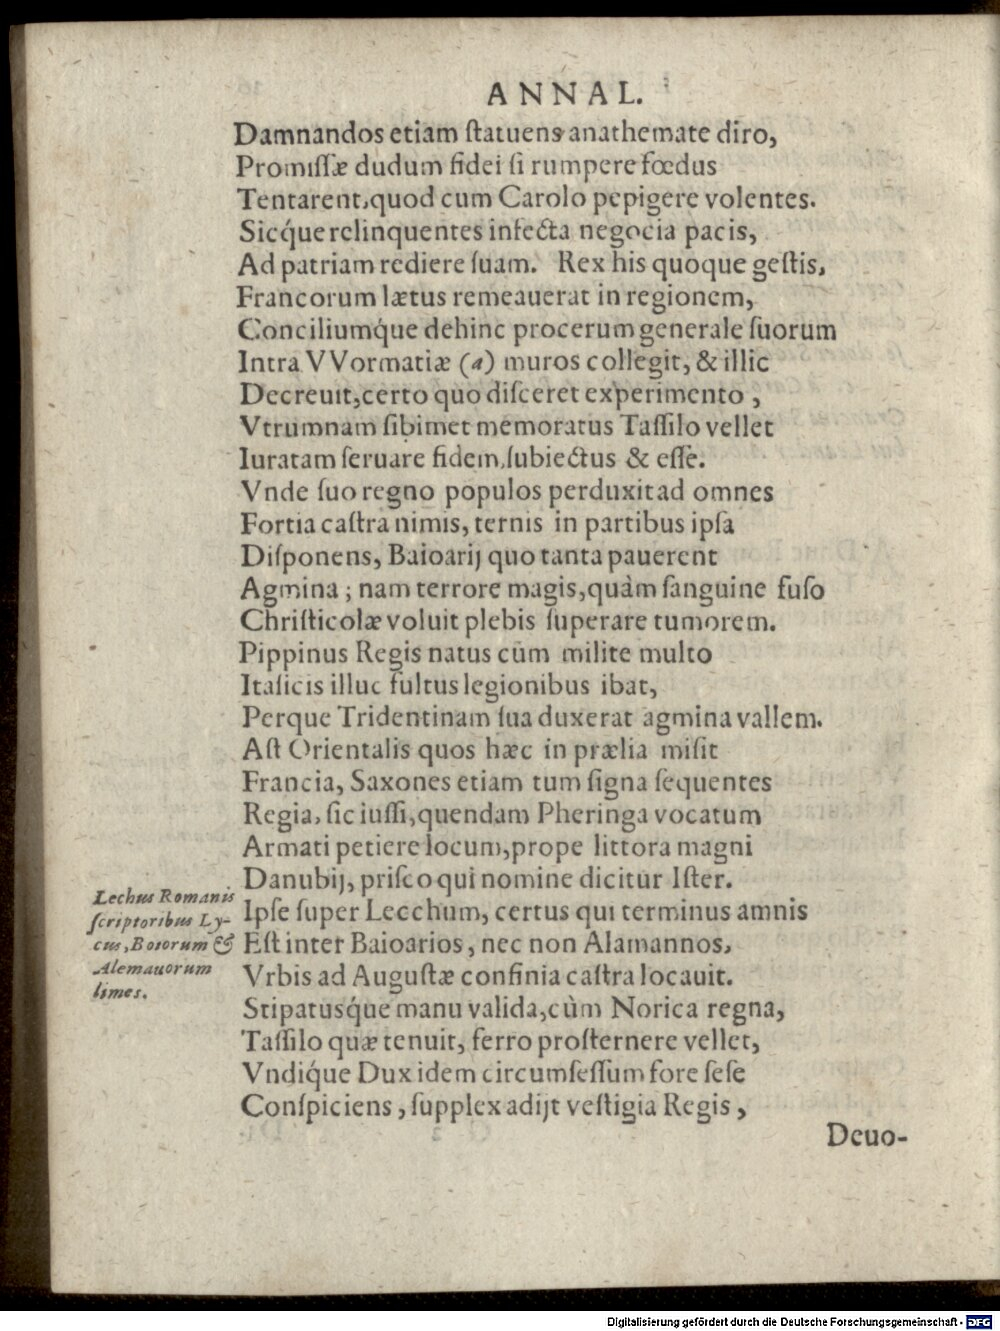 ANNAL.
Damnandos etiam ſtatuens anathemate diro,
Promiſſæ dudum fidei ſi rumpere fœdus
Tentarent, quod cum Carolo pepigere volentes.
Sicq́ue relinquentes infecta negocia pacis,
Ad patriam rediere ſuam. Rex his quoque geſtis,
Francorum lætus remeauerat in regionem,
Conciliumq́ue dehinc procerum generale ſuorum
Intra VVormatiæ (a) muros collegit, & illic
Decreuit, certo quo diſceret experimento,
Vtrumnam ſibimet memoratus Taſſilo vellet
Iuratam ſeruare fidem, ſubiectus & eſſe.
Vnde ſuo regno populos perduxit ad omnes
Fortia caſtra nimis, ternis in partibus ipſa
Diſponens, Baioarij quo tanta pauerent
Agmina; nam terrore magis, quàm ſanguine fuſo
Chriſticolæ voluit plebis ſuperare tumorem.
Pippinus Regis natus cùm milite multo
Italicis illuc fultus legionibus ibat,
Perque Tridentinam ſua duxerat agmina vallem.
Aſt Orientalis quos hæc in prælia miſit
Francia, Saxones etiam tum ſigna ſequentes
Regia, ſic iuſſi, quendam Pheringa vocatum
Armati petiere locum, prope littora magni
Danubij, priſco qui nomine dicitur Iſter.
Ipſe ſuper Lecchum, certus qui terminus amnis
Eſt inter Baioarios, nec non Alamannos,
Vrbis ad Auguſtæ confinia caſtra locauit.
Stipatuſq́ue manu valida, cùm Norica regna,
Taſſilo quæ tenuit, ferro proſternere vellet,
Vndiq́ue Dux idem circumſeſſum fore ſeſe
Conſpiciens, ſupplex adijt veſtigia Regis,
Deuo-
Lechus Romanis
ſcriptoribus Ly-
cus, Boiorum &
Alemauorum
limes.
Digitalisierung gefördert durch die Deutsche Forschungsgemeinschaft - DFG